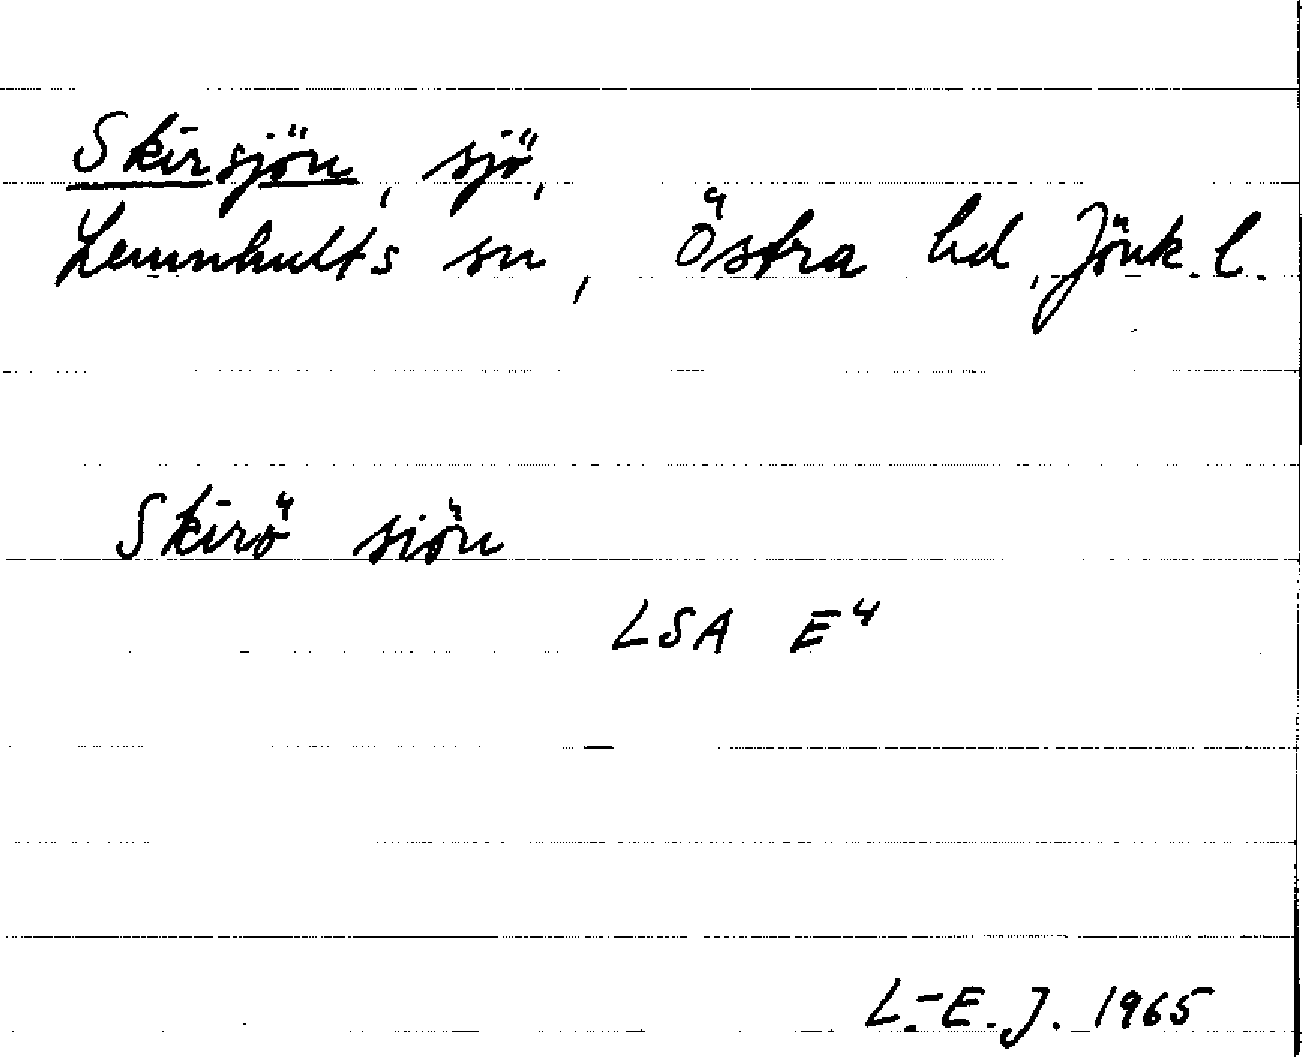 Skirsjön, sjö,
Lemnhults sn, Östra hd, Jönk. l.
Skirö siön
LSA E⁴
L.-E. J. 1965